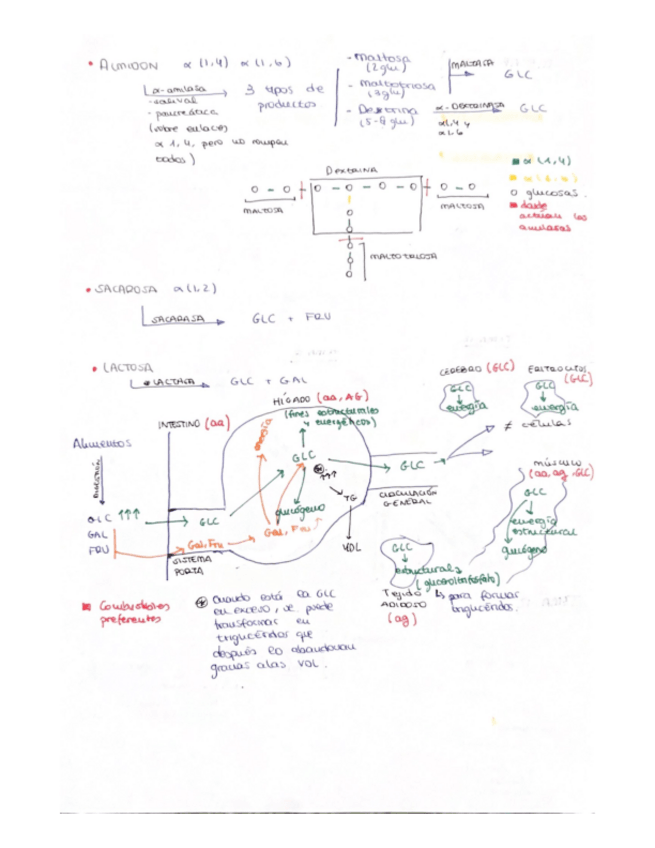 • ALMIDON α (1,4) α (1,6)
α-amilasa
- salival
- pancreática
(sobre enlaces
α 1,4, pero no rompen
todos)
3 tipos de
productos
- Maltosa
(2 glu)
- Maltotriosa
- Dextrina
(5-8 glu)
MALTASA
GLC
α-DEXTRINASA GLC
α1,4 y
α1,6
α (1,4)
O glucosas.
donde
actúan las
amilasas
DEXTRINA
O - O O - O - O - O O - O
MALTOSA
MALTOSA
MALTOTRIOSA
• SACAROSA α (1,2)
SACARASA GLC + FRU
• LACTOSA
LACTASA GLC + GAL
CEREBRO (GLC)
GLC
energía
ERITROCITOS
(GLC)
GLC
energía
≠ células
HÍGADO (aa, AG)
(fines estructurales
y energéticos)
INTESTINO (aa)
energía
Alimentos
GLC
GLC
↑↑↑
TG
glucógeno
Gal, Fru
VDL
CIRCULACIÓN
GENERAL
músculo
(aa, ag, GLC)
GLC
energía
estructural
glucógeno
GLC ↑↑↑
GAL
FRU
GLC
Gal, Fru
SISTEMA
PORTA
GLC
estructurals
(glicerolfosfato)
Tejido
ADIPOSO
(ag)
para formar
triglicéridos.
Combustibles
preferentes
Cuando está la GLC
en exceso, se puede
transformar en
triglicéridos que
después lo abandonan
gracias a las VDL.